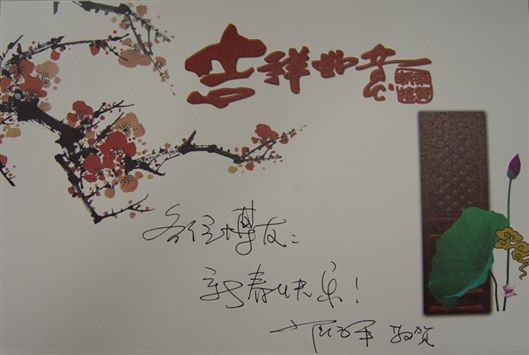 吉祥如意
各位博友：
新春快乐！
敬贺